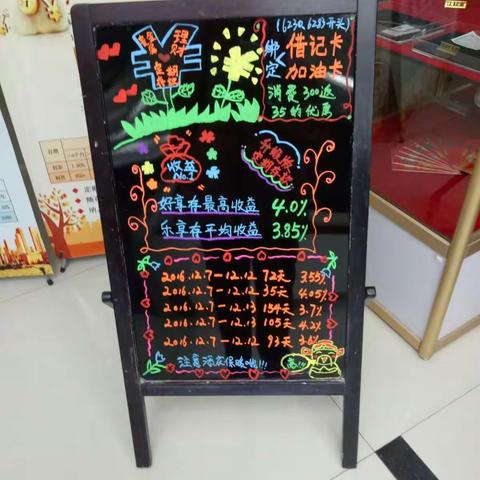 理财
(623或628开头)
绑定
借记卡
加油卡
消费300返
35的优惠
收益
No.1
好享存最高收益 4.0%
乐享存平均收益 3.85%
2016.12.7—12.12 72天 3.55%
2016.12.7—12.12 35天 4.05%
2016.12.7—12.13 154天 3.7%
2016.12.7—12.13 105天 4.2%
2016.12.7—12.12 93天 3.6%